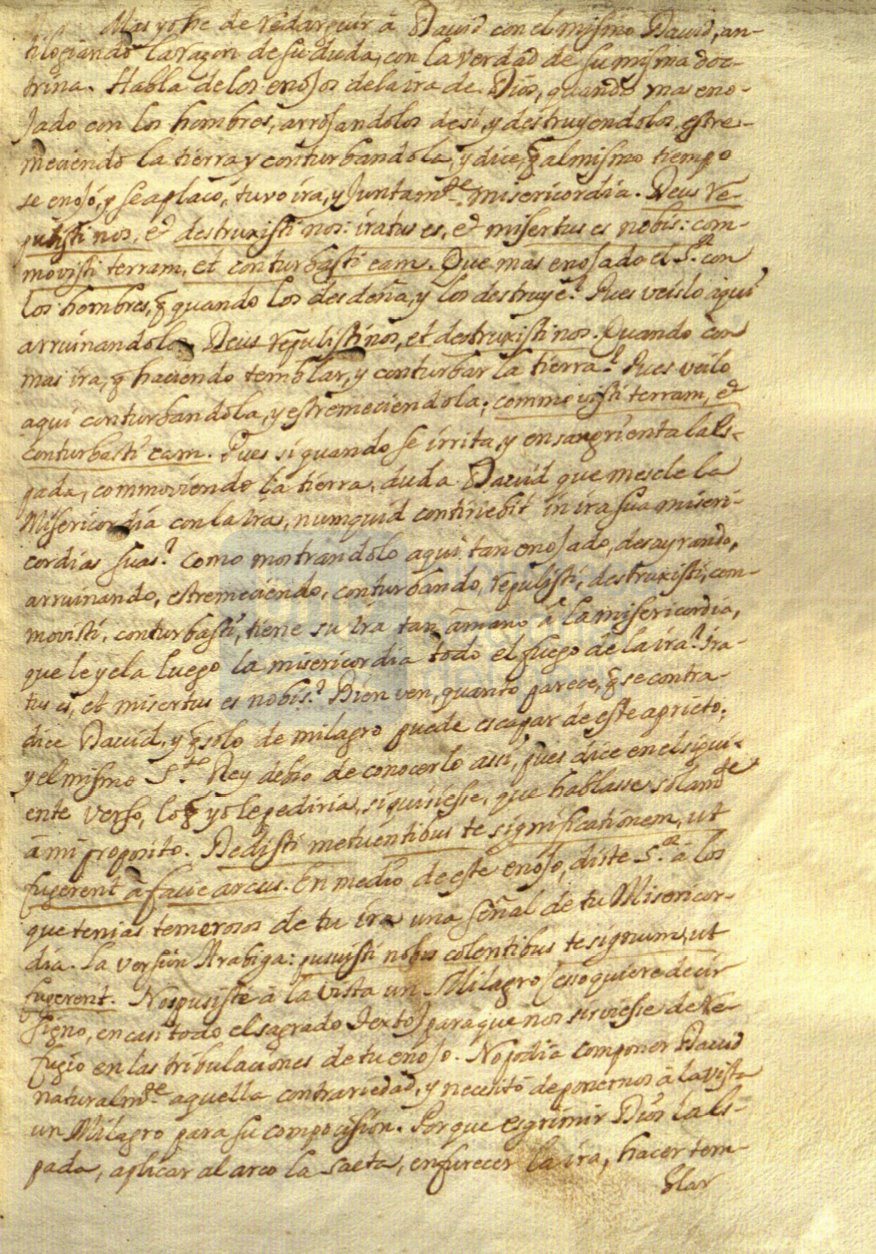 Mas yo he de redarguir â David con el mismo David, an-
tilogiando la razon de su duda, con la verdad de su misma doc-
trina. Habla de los enojos de la ira de Dios, quando mas eno-
jado con los hombres, arrojandolos de si, y destruyendolos, estre-
meciendo la tierra y conturbandola, y dice, q̃ al mismo tiempo
se enojó, y se aplacó, tuvo ira, y juntam.te misericordia. Deus re-
pulisti nos, et destruxisti nos: iratus es, et misertus es nobis: com-
movisti terram, et conturbasti eam. Que mas enojado el S.r con
los hombres, q̃ quando los desdeña, y los destruye? Pues veislo aqui
arruinandolos Deus repulisti nos, et destruxisti nos. Quando con
mas ira, q̃ haciendo temblar, y conturbar la tierra? Pues veislo
aqui conturbandola, y estremeciendola; commovisti terram, et
conturbasti eam. Pues si quando se irrita, y ensangrienta la es-
pada, commoviendo la tierra, duda David que mescle la
Misericordia con la ira, numquid continebit in ira sua miseri-
cordias suas? como mostrandolo aqui tan enojado, desayrando,
arruinando, estremeciendo, conturbando, repulisti, destruxisti, com-
movisti, conturbasti, tiene su ira tan âmano â la misericordia,
que le yela luego la misericordia todo el fuego de la ira? Ira-
tus es, et misertus es nobis? Bien ven, quanto parece, q̃ se contra-
dice David, y q̃ solo de milagro puede escapar de este aprieto;
y el mismo S.to Rey debio de conocerlo assi, pues dice en el sigui-
ente verso, lo q̃ yo le pediria, si quisiesse, que hablasse solam.te
â mi proposito. Dedisti metuentibus te significationem, ut
fugerent â facie arcus. En medio de este enojo, diste S.r â los
que tenias temerosos de tu ira una señal de tu Misericor-
dia. La version Arabiga: posuisti nobis colentibus te signum, ut
fugerent. Nos pusiste â la vista un Milagro (esso quiere decir
signo, en casi todo el sagrado Texto) para que nos sirviesse de Re-
fugio en las tribulaciones de tu enojo. No podia componer David
naturalm.te aquella contrariedad, y necesitó de ponernos â la vista
un Milagro para su composision. Porque esgrimir Dios la es-
pada, aplicar al arco la saeta, enfurecer la ira, hacer tem-
blar